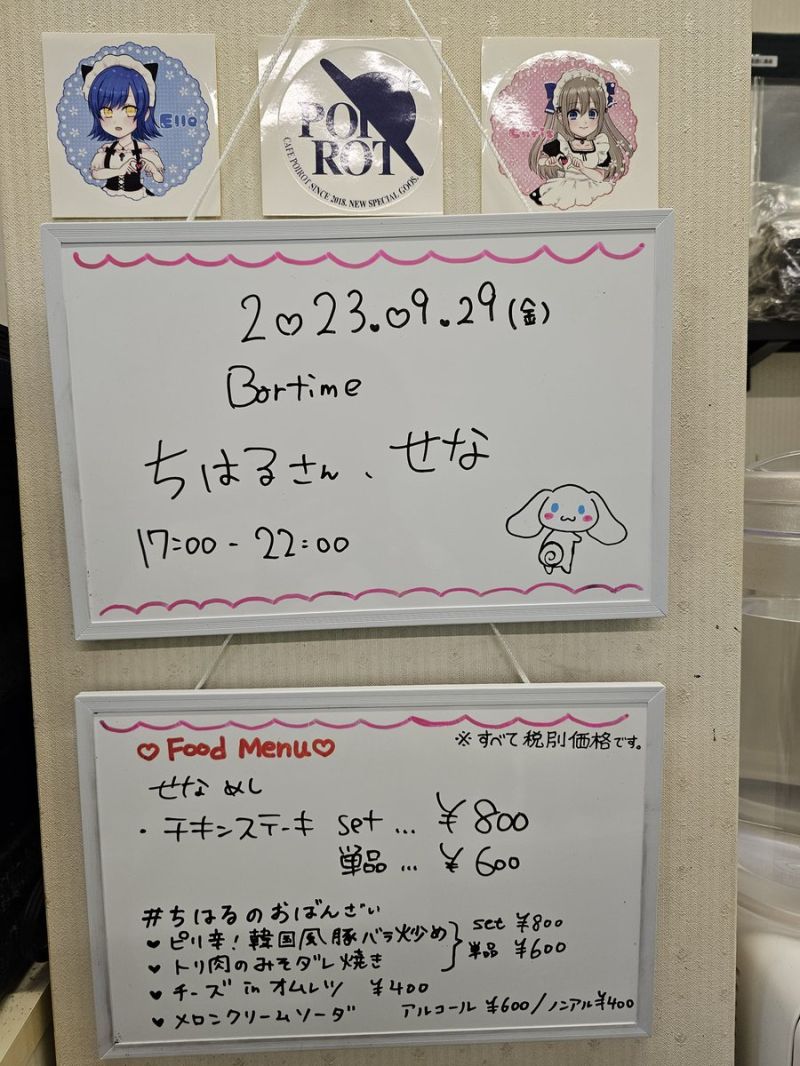 Ella
POIROT
CAFE POIROT SINCE 2018. NEW SPECIAL GOODS.
2♡23.♡9.29(金)
Bartime
ちはるさん、せな
17:00 - 22:00
♡Food Menu♡
※すべて税別価格です。
せなめし
・チキンステーキ set... ¥800
単品... ¥600
#ちはるのおばんざい
♥ピリ辛!韓国風豚バラ炒め set ¥800
♥トリ肉のみそダレ焼き 単品 ¥600
♥チーズinオムレツ ¥400
♥メロンクリームソーダ アルコール ¥600/ノンアル¥400